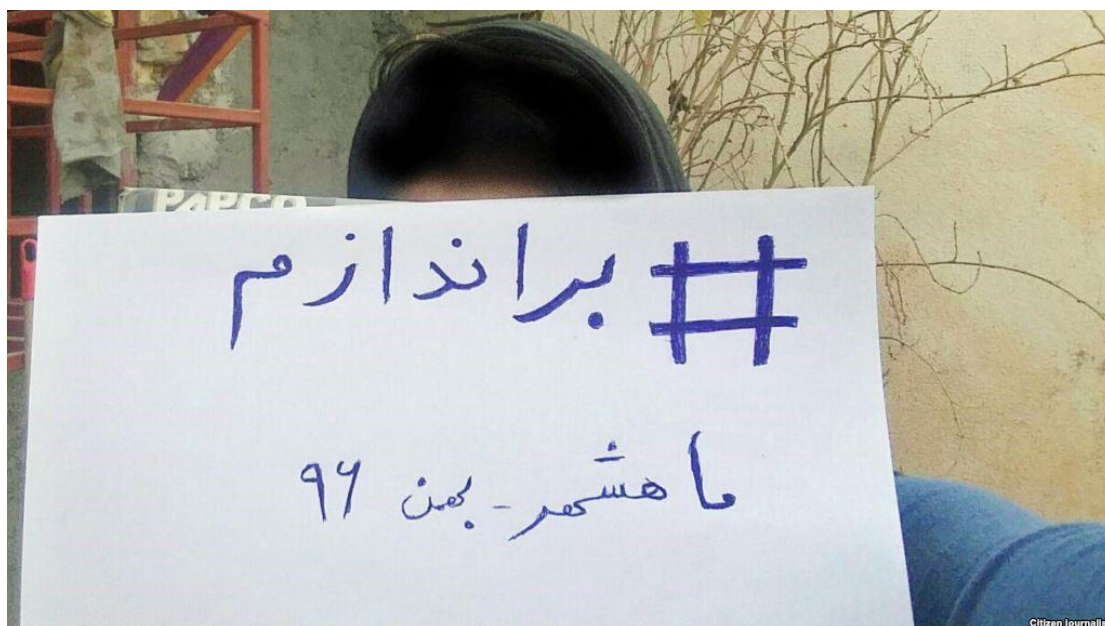 PAPCO
#براندازم
ماهشهر - بهمن ۹۶
Citizen Journalis